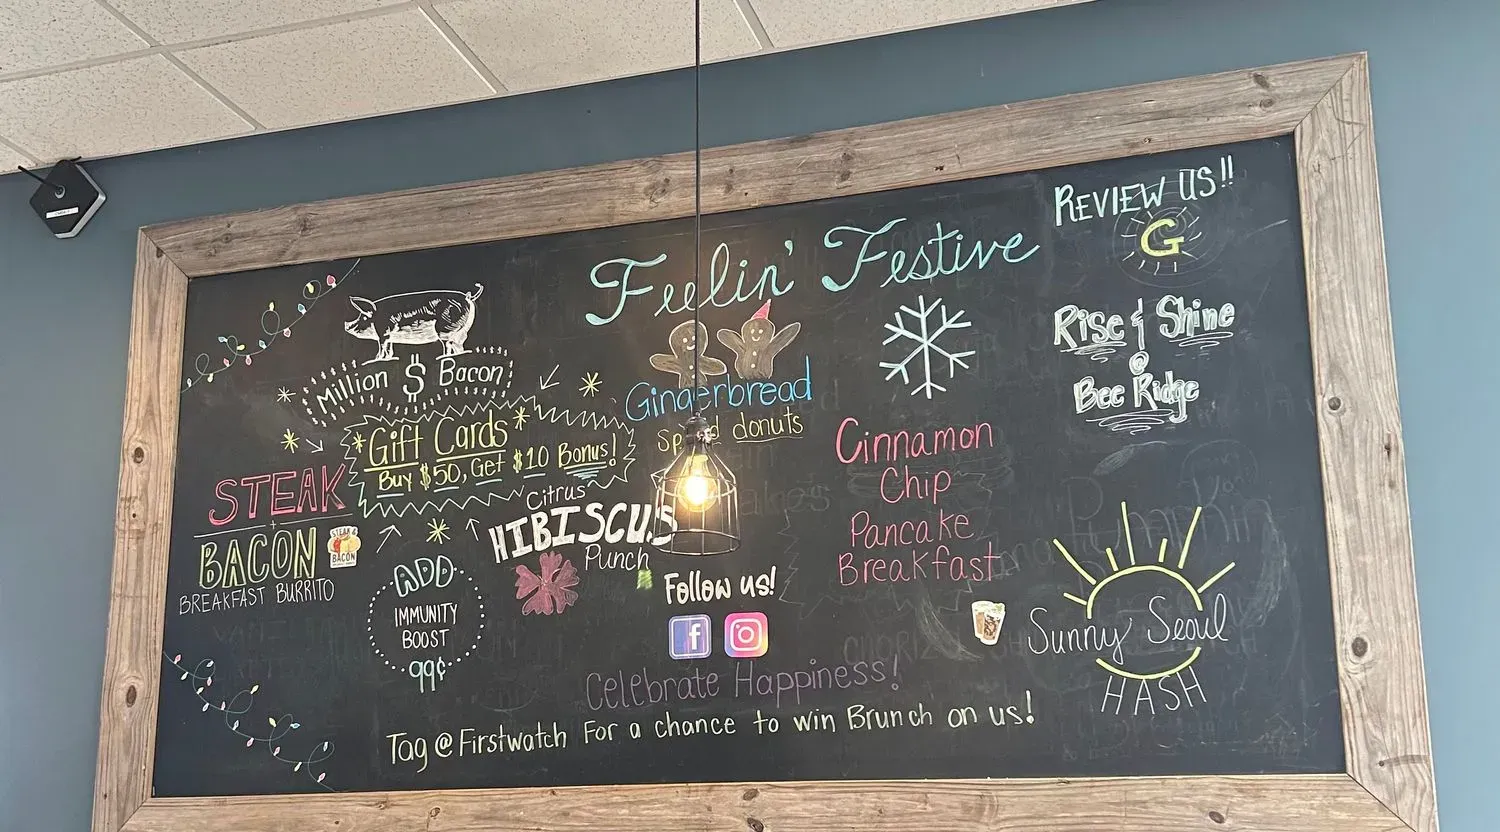 Feelin' Festive
REVIEW US!!
G
Million $ Bacon
*Gift Cards*
Buy $50, Get $10 Bonus!
STEAK
+
BACON
BREAKFAST BURRITO
STEAK &
BACON
Citrus
HIBISCUS
Punch
ADD
IMMUNITY
BOOST
99¢
Gingerbread
donuts
Cinnamon
Chip
Pancake
Breakfast
Rise & Shine
@
Bee Ridge
Sunny Seoul
HASH
Follow us!
f
Celebrate Happiness!
Tag @Firstwatch For a chance to win Brunch on us!